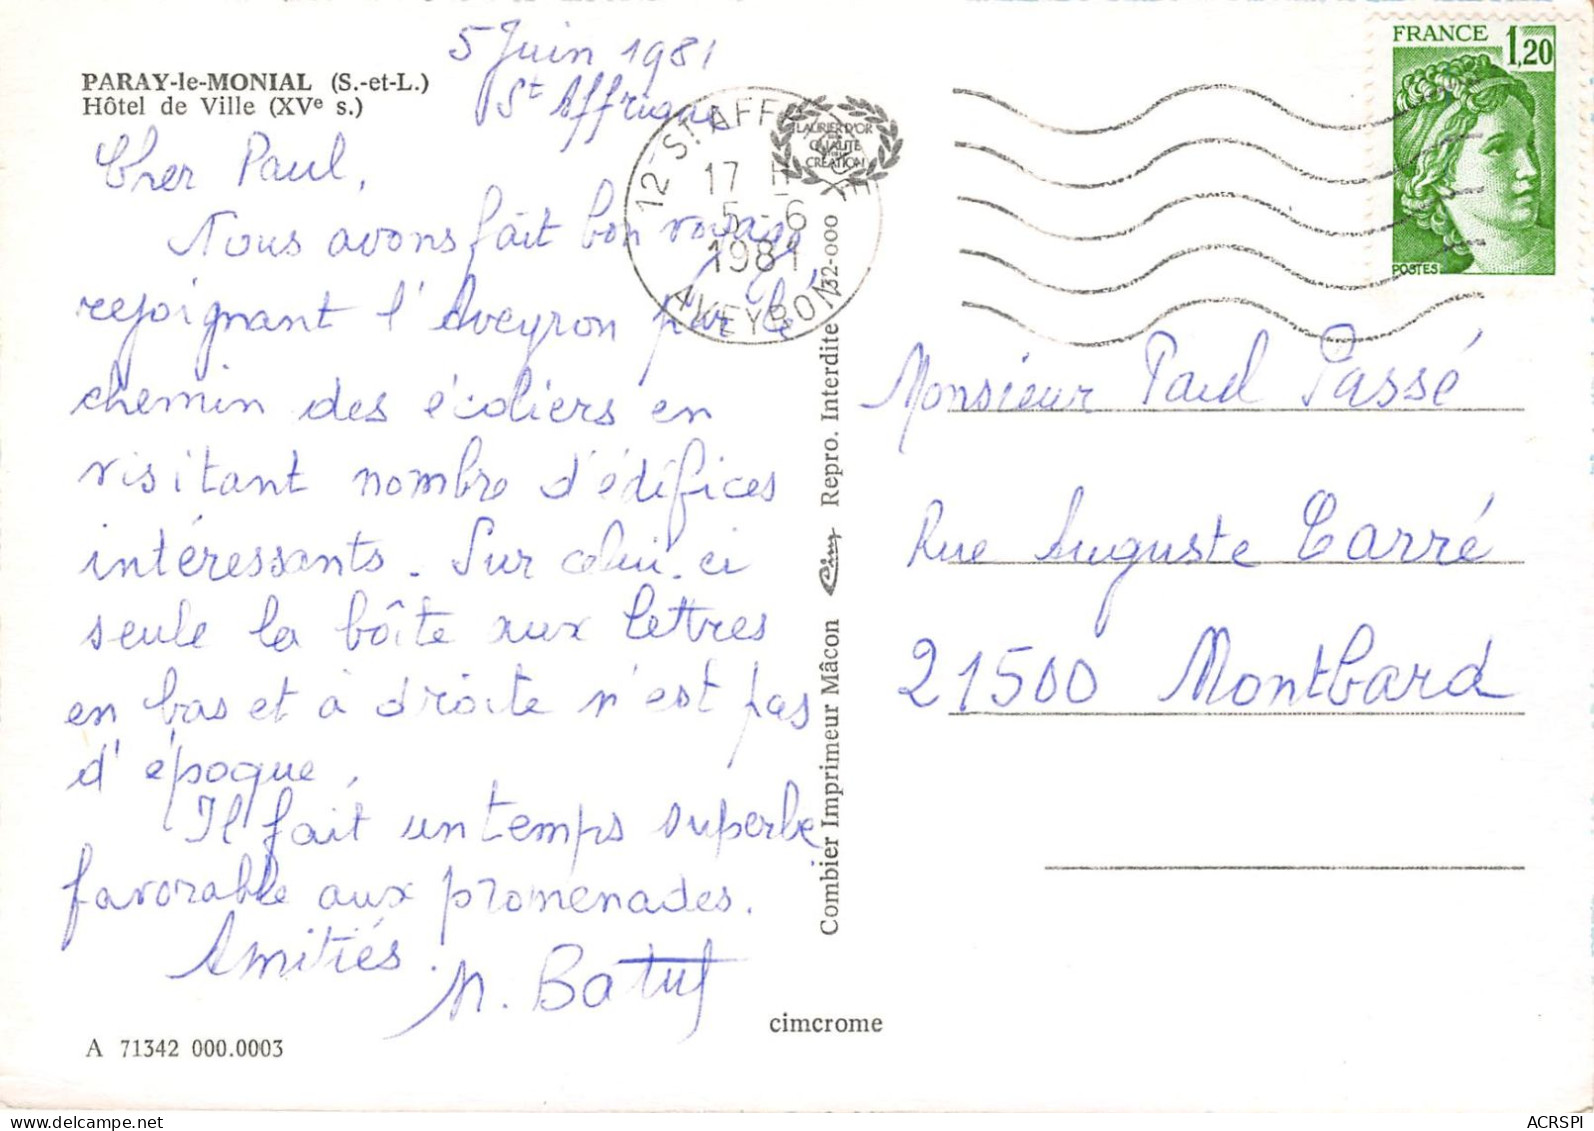 PARAY-le-MONIAL (S.-et-L.)
Hôtel de Ville (XVe s.)
5 Juin 1981
St Affrique
Cher Paul,
Nous avons fait bon voyage
rejoignant l'Aveyron par le
chemin des écoliers en
visitant nombre d'édifices
intéressants. Sur celui-ci
seule la boîte aux lettres
en bas et à droite n'est pas
d'époque.
Il fait un temps superbe
favorable aux promenades.
Amitiés.
A 71342 000.0003
12 ST AFFRIQUE
17 H
5-6
1981
AVEYRON
LAURIER D'OR
DE LA
QUALITÉ
CRÉATION
Combier Imprimeur Mâcon Cim Repro. Interdite 32-000
cimcrome
FRANCE 1,20
POSTES
Monsieur Paul Passé
Rue Auguste Carré
21500 Montbard
ACRSPI